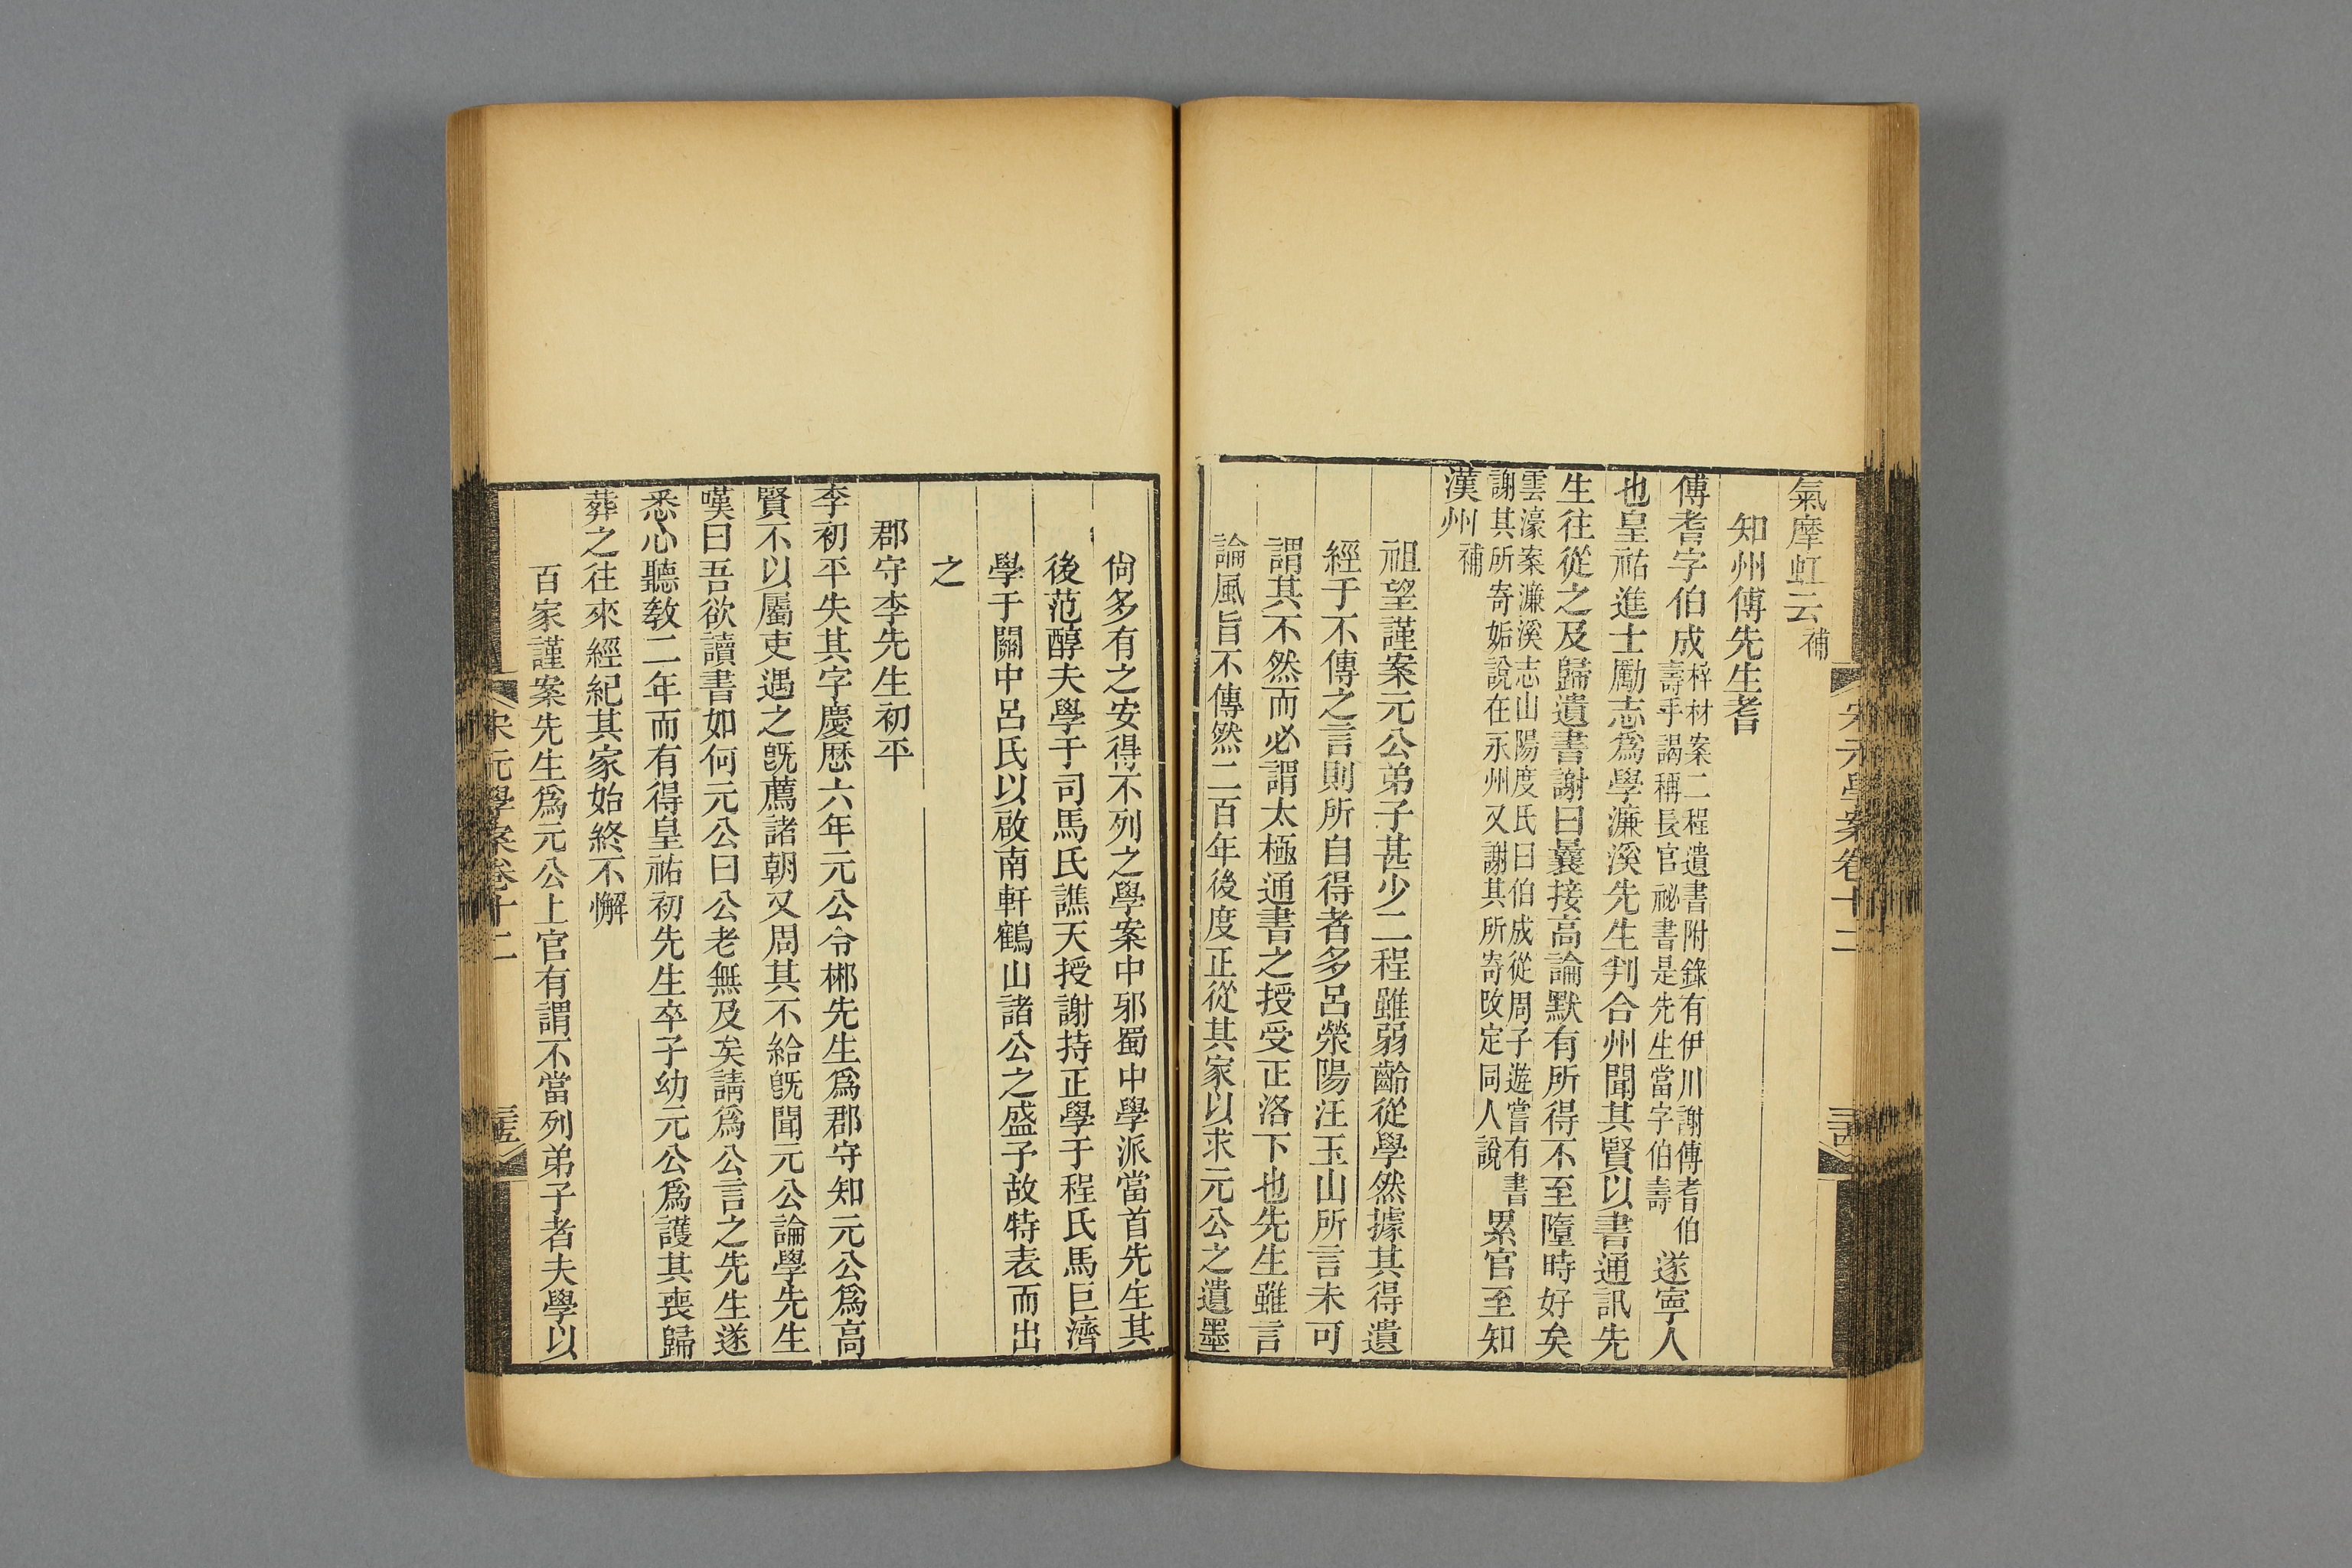 宋元學案卷十二
氣摩虹云補
知州傅先生耆
傅耆字伯成梓材案二程遺書附錄有伊川謝傅耆伯壽手謁稱長官祕書是先生當字伯壽遂寧人
也皇祐進士勵志爲學濂溪先生判合州聞其賢以書通訊先
生往從之及歸遺書謝曰曩接高論默有所得不至墮時好矣
雲濠案濂溪志山陽度氏曰伯成從周子遊嘗有書謝其所寄姤說在永州又謝其所寄改定同人說累官至知
漢州補
祖望謹案元公弟子甚少二程雖弱齡從學然據其得遺
經于不傳之言則所自得者多呂滎陽汪玉山所言未可
謂其不然而必謂太極通書之授受正洛下也先生雖言
論風旨不傳然二百年後度正從其家以求元公之遺墨
尙多有之安得不列之學案中邪蜀中學派當首先生其
後范醇夫學于司馬氏譙天授謝持正學于程氏馬巨濟
學于關中呂氏以啟南軒鶴山諸公之盛予故特表而出
之
郡守李先生初平
李初平失其字慶厯六年元公令郴先生爲郡守知元公爲高
賢不以屬吏遇之旣薦諸朝又周其不給旣聞元公論學先生
嘆曰吾欲讀書如何元公曰公老無及矣請爲公言之先生遂
悉心聽敎二年而有得皇祐初先生卒子幼元公爲護其喪歸
葬之往來經紀其家始終不懈
百家謹案先生爲元公上官有謂不當列弟子者夫學以
宋元學案卷十二